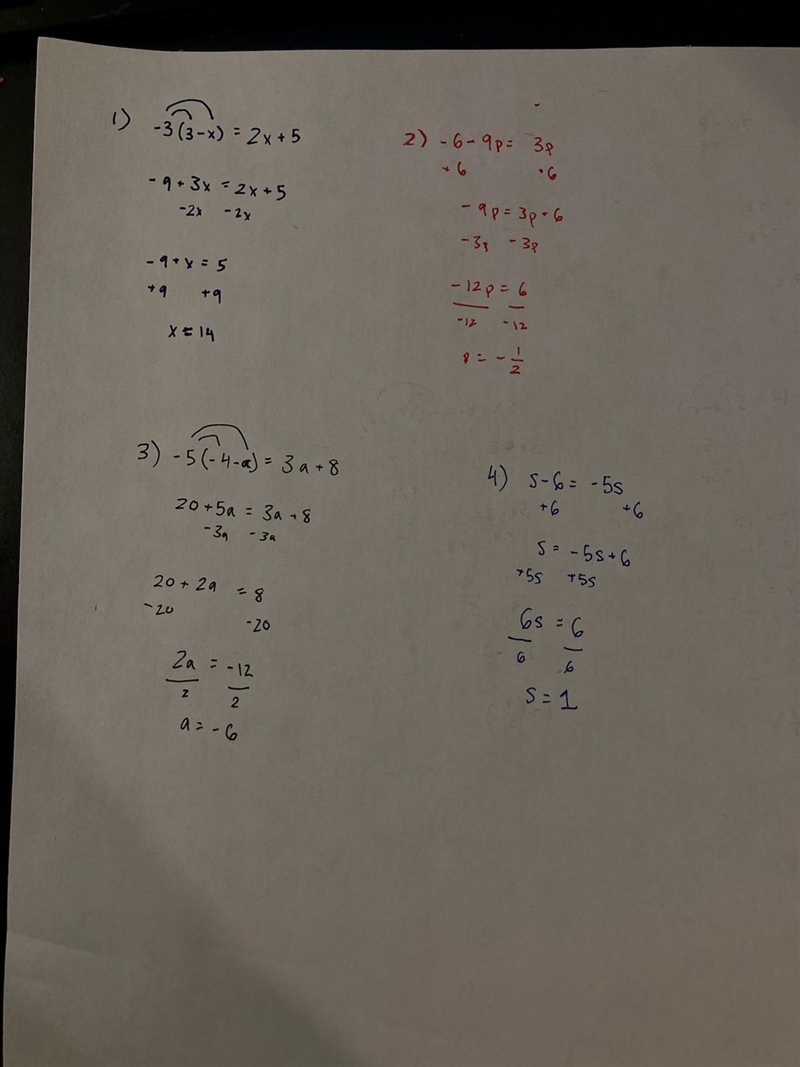 1) -3(3-x) = 2x+5
-9+3x = 2x+5
-2x -2x
-9+x = 5
+9 +9
x = 14
2) -6-9p= 3p
+6 +6
-9p=3p+6
-3p -3p
-12p = 6
-12 -12
p = - 1/2
3) -5(-4-a) = 3a+8
20+5a = 3a+8
-3a -3a
20+2a = 8
-20 -20
2a = -12
2 2
a = -6
4) s-6= -5s
+6 +6
s= -5s+6
+5s +5s
6s = 6
6 6
s=1